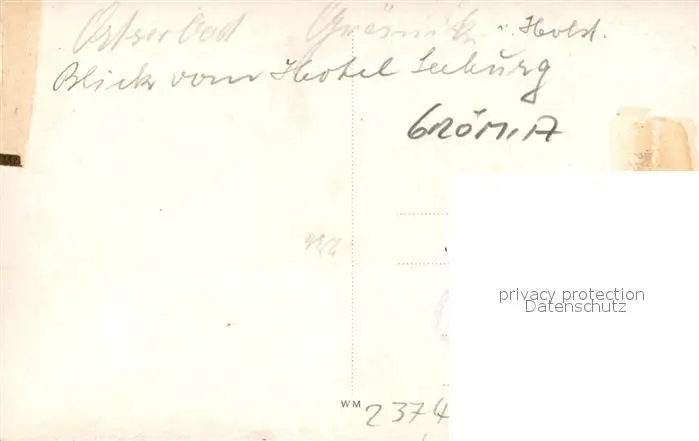 Ostseebad Grömitz i. Holst.
Blick vom Hotel Seeburg
GRÖM.A
privacy protection
Datenschutz
WM
2374